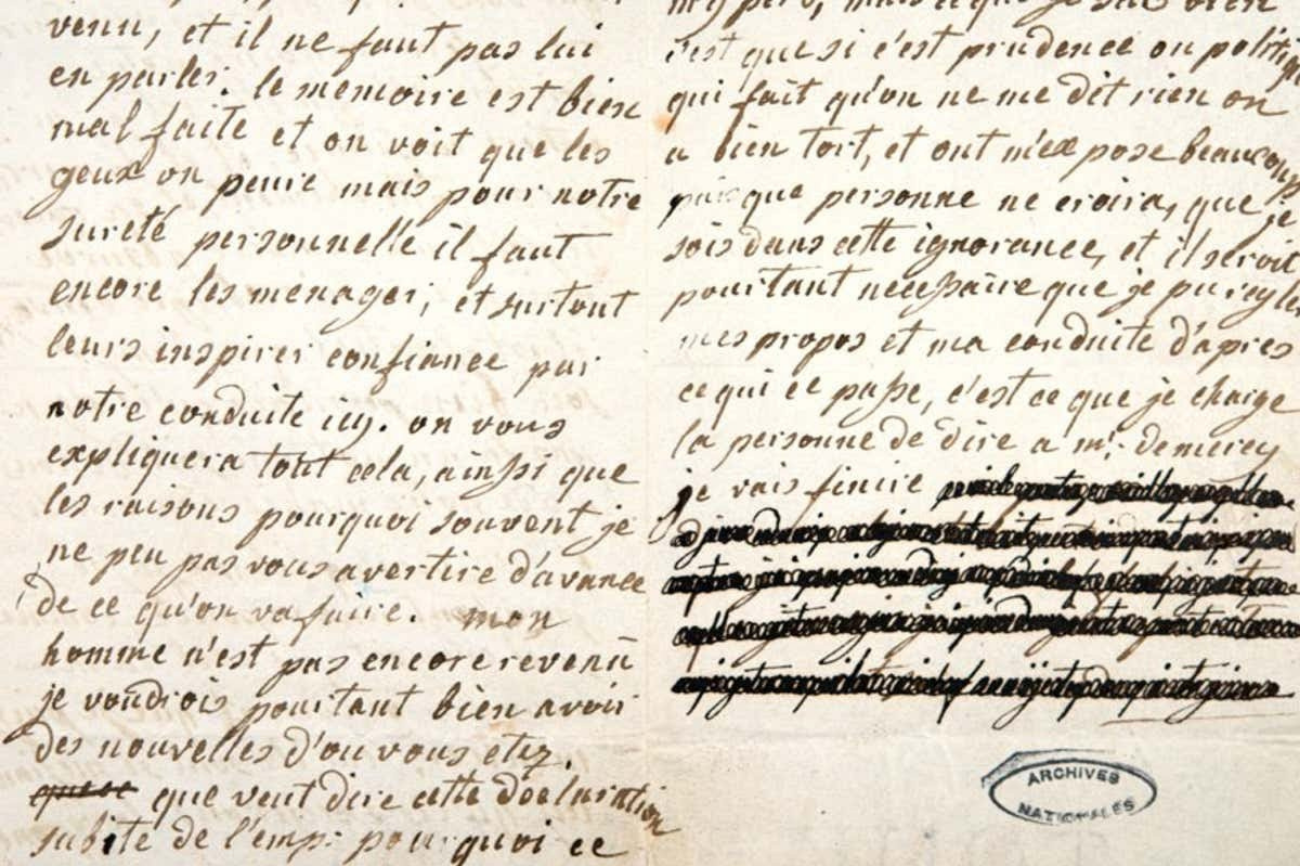 venu, et il ne faut pas lui
en parler. le memoire est bien
mal faite et on voit que les
geux on peure mais pour notre
sureté personnelle il faut
encore les menager, et surtout
leurs inspirer confiance par
notre conduite icy. on vous
expliquera tout cela, ainssi que
les raisons pourquoi souvent je
ne peu pas vous avertire d'avance
de ce qu'on va faire. mon
homme n'est pas encore revenu
je voudrois pourtant bien avoir
des nouvelles d'ou vous etez.
que veut dire cette declaration
subite de l'emp: pourquoi ce
c'est que si c'est prudence ou politique
qui fait qu'on ne me dit rien on
a bien tort, et ont m'expose beaucoup
puisque personne ne croira, que je
sois dans cette ignorance, et il seroit
pourtant necessaire que je pu regler
mes propos et ma conduite d'apres
ce qui ce passe, c'est ce que je charge
la personne de dire a mr. de mercy
je vais finire
ARCHIVES
NATIONALES